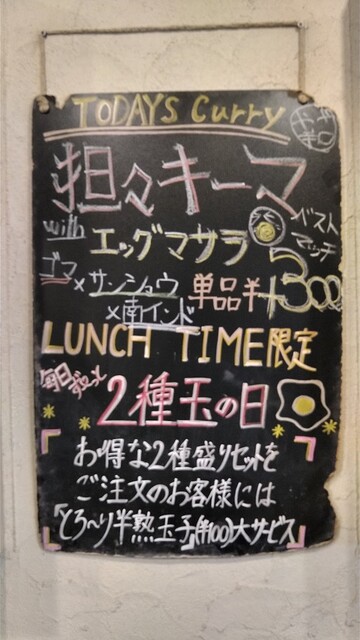 TODAYS Curry
担々キーマ
with エッグマサラ
ベストマッチ
ゴマ×サンショウ×南インド
単品¥+300
LUNCH TIME限定
毎日ずーっと
2種玉の日
お得な2種盛りセットを
ご注文のお客様には
「とろ〜り半熟玉子」(¥100)大サービス